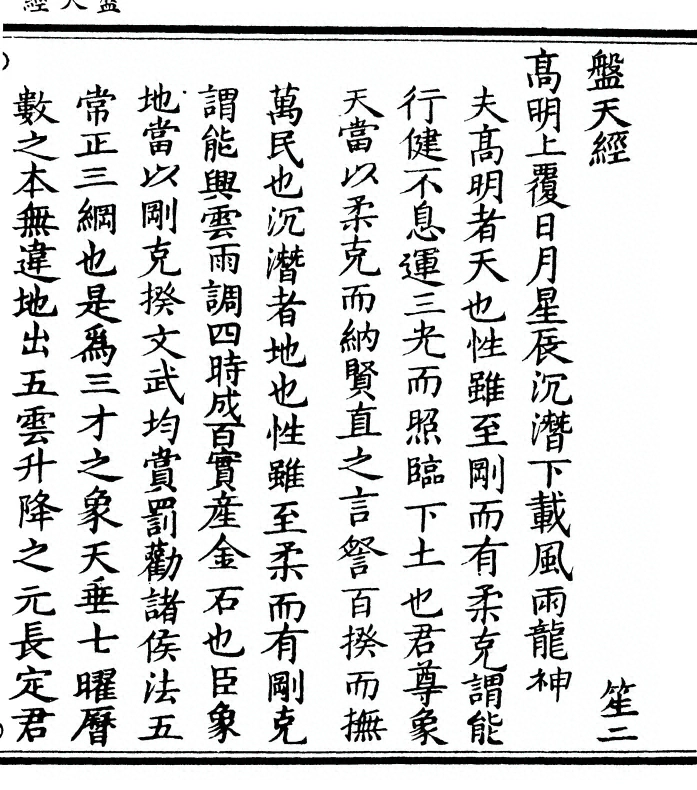 盤天經 笙二
高明上覆日月星辰沉潛下載風雨龍神
夫高明者天也性雖至剛而有柔克謂能
行健不息運三光而照臨下土也君尊象
天當以柔克而納賢直之言詧百揆而撫
萬民也沉潛者地也性雖至柔而有剛克
謂能興雲雨調四時成百實產金石也臣象
地當以剛克揆文武均賞罰勸諸侯法五
常正三綱也是爲三才之象天垂七曜曆
數之本無違地出五雲升降之元長定君